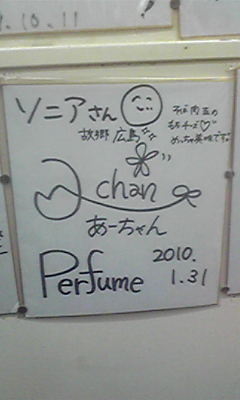 9.10.11
ソニアさん
故郷広島
そば肉玉の
もちチーズ♡
めっちゃ美味です。
a chan
あ〜ちゃん
Perfume
2010.
1.31